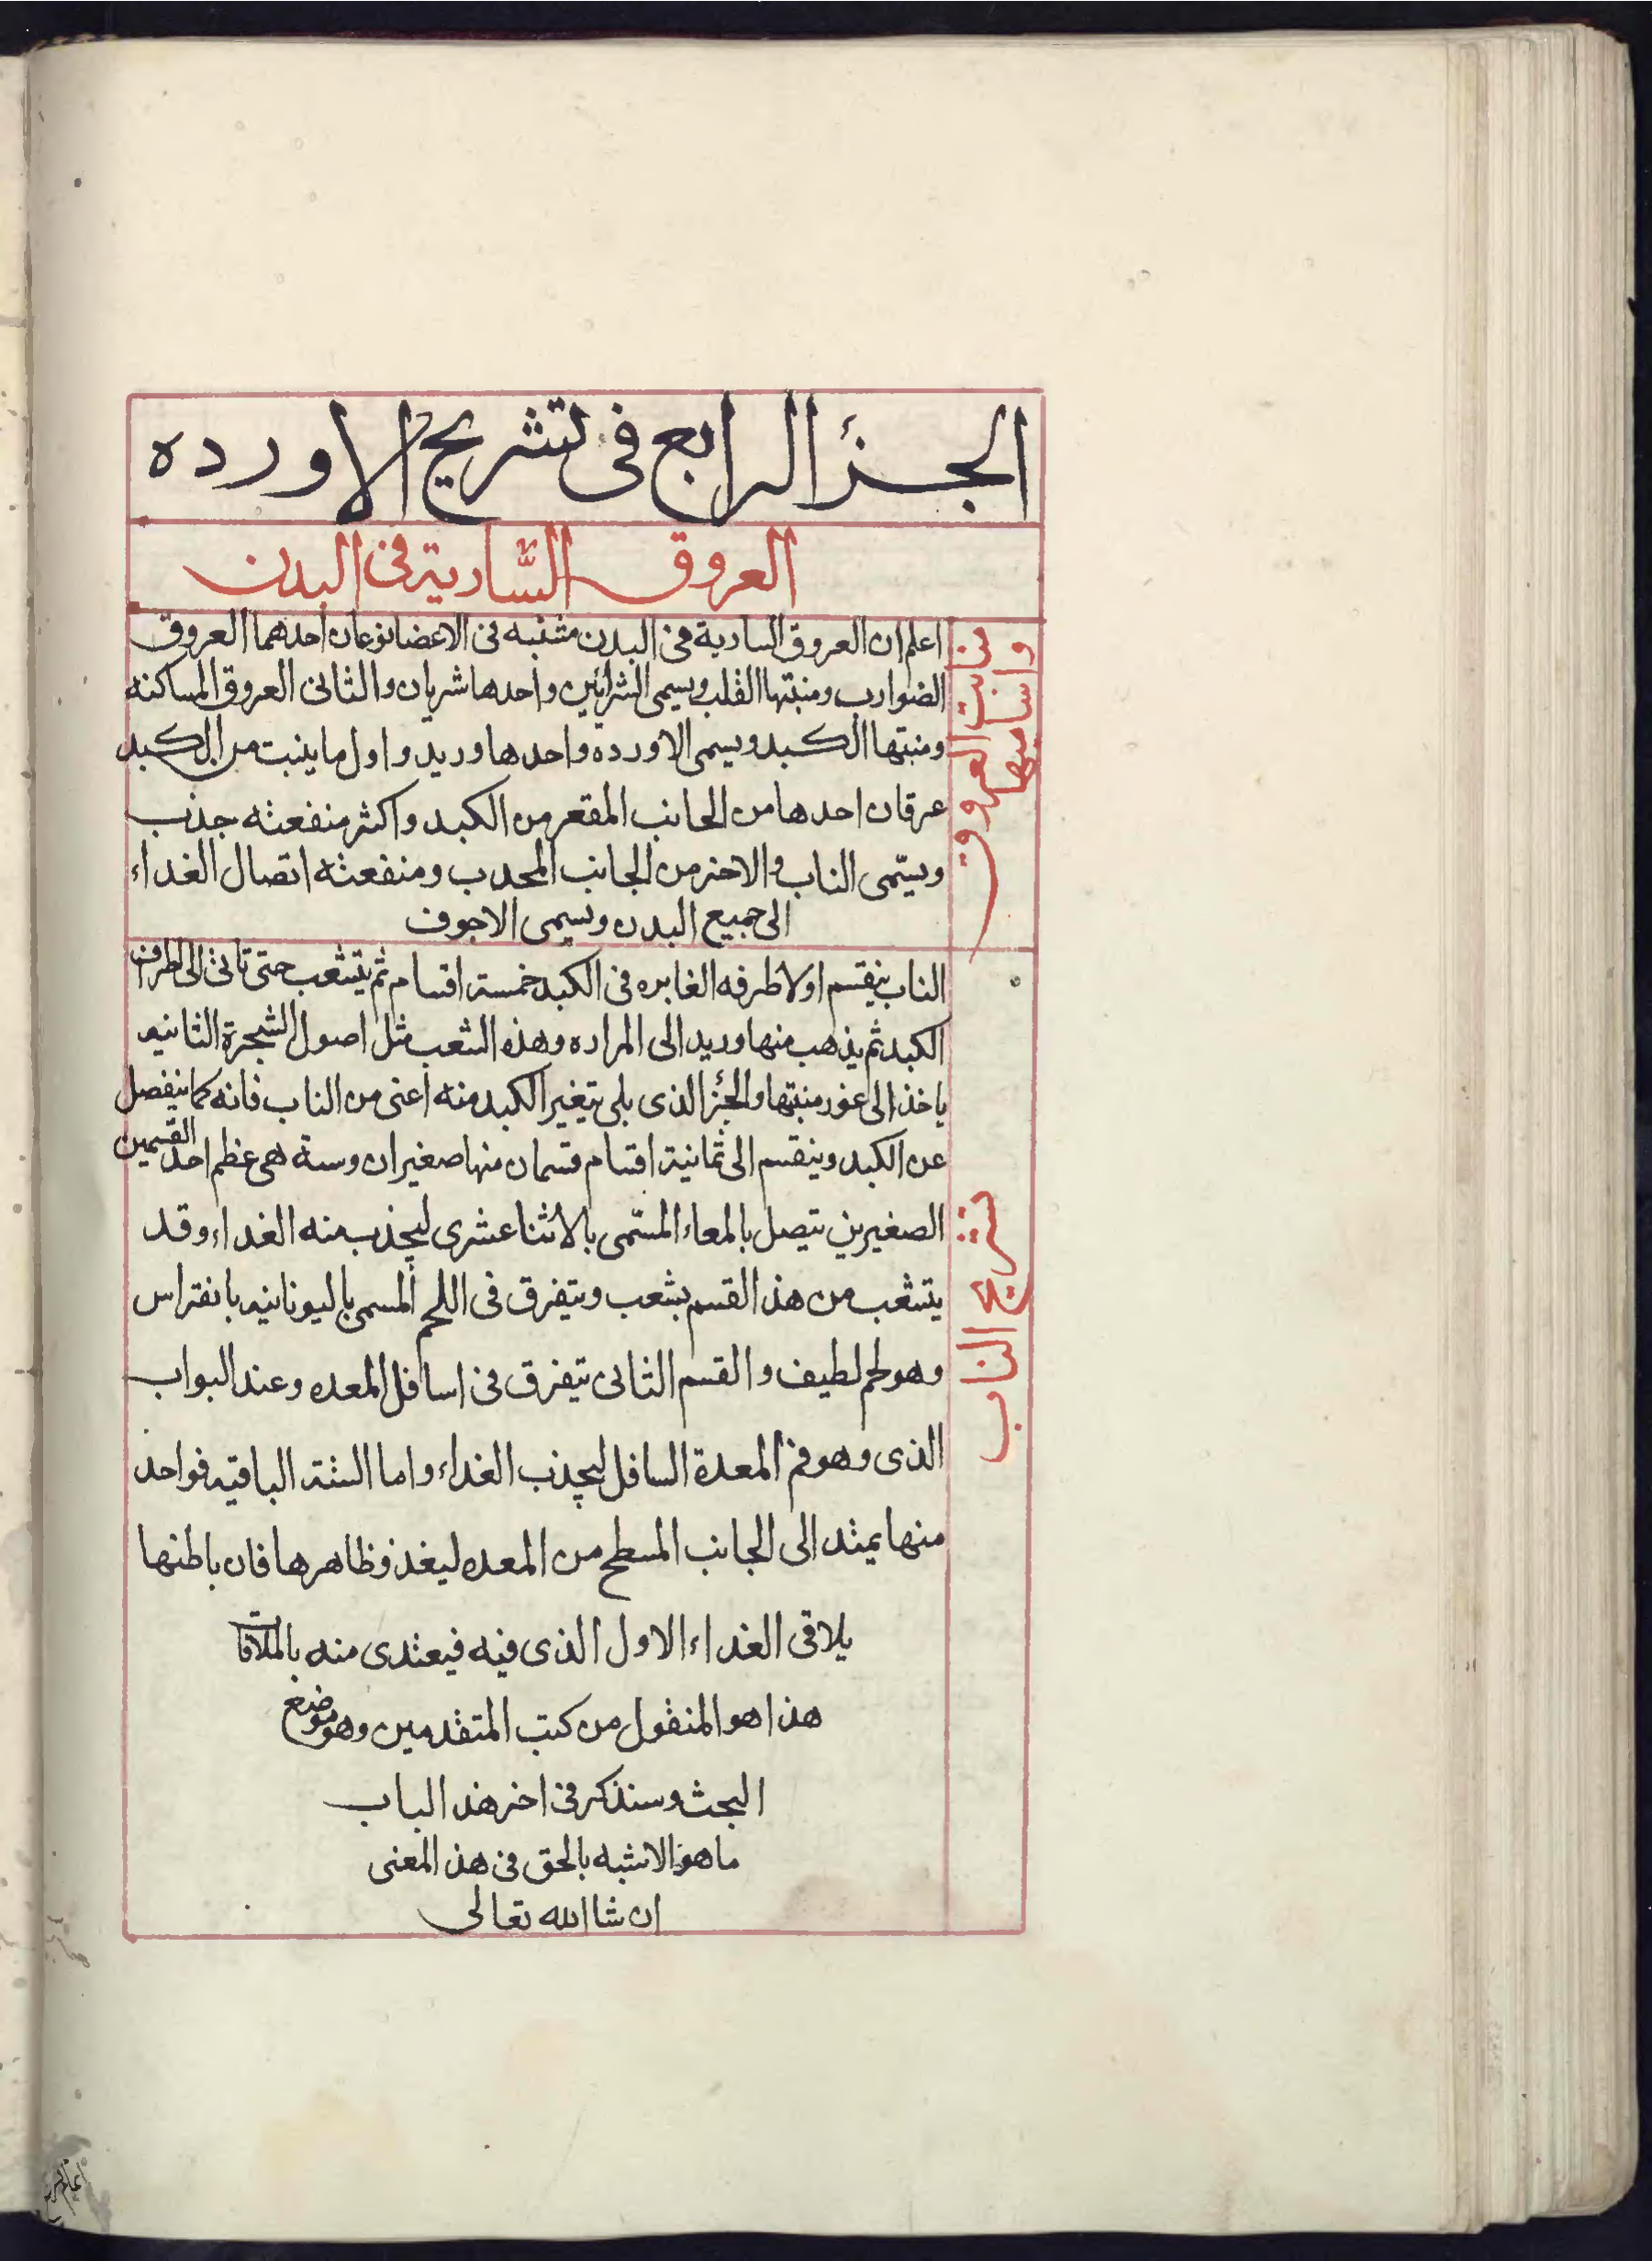 الجزء الرابع فى تشريح الاورده
العروق السّارية فى البدن
منابت العروق
واساميها
اعلم ان العروق السارية فى البدن متنبه فى الاعضا نوعان احدهما العروق
الضوارب ومنبتها القلب ويسمى الشرائين واحدها شريان والثانى العروق الساكنه
ومنبتها الكبد ويسمى الاورده واحدها وريد واول ما ينبت من الكبد
عرقان احدها من الجانب المقعر من الكبد واكثر منفعته جذب
ويسّمى الناب والاخر من الجانب المحدب ومنفعته اتصال الغداء
الى جميع البدن ويسمى الاجوف
تشريح الناب
الناب ينقسم اولا طرفه الغابره فى الكبد خمسة اقسام ثم يتشعب حتى تاتى الى اطراف
الكبد ثم يذهب منها وريد الى المراره وهذه الشعب مثل اصول الشجرة الثانيه
ياخذ الى غور منبتها والجزء الذى يلى تغير الكبد منه اعنى من الناب فانه كما ينفصل
عن الكبد وينقسم الى ثمانية اقسام قسمان منها صغيران وستة هى عظم احد القسمين
الصغيرين يتصل بالمعاء المسّمى بالاثنا عشرى ليجذب منه الغداء وقد
يتشعب من هذ القسم بشعب ويتفرق فى اللحم المسمى باليونانيه بانقراس
وهو لحم لطيف والقسم الثانى يتفرق فى اسافل المعده وعند البواب
الذى وهو فم المعدة السافل ليجذب الغداء واما الستة الباقيه فواحد
منها يمتد الى الجانب المسطح من المعده ليغذو ظاهرها فان باطنها
يلاقى الغداء الاول الذى فيه فيعتدى منه بالملاقا
هذا هو المنقول من كتب المتقدمين وهو موضع
البحث وسنذكر فى اخر هذ الباب
ما هو الاشبه بالحق فى هذ المعنى
ان شا الله تعالى